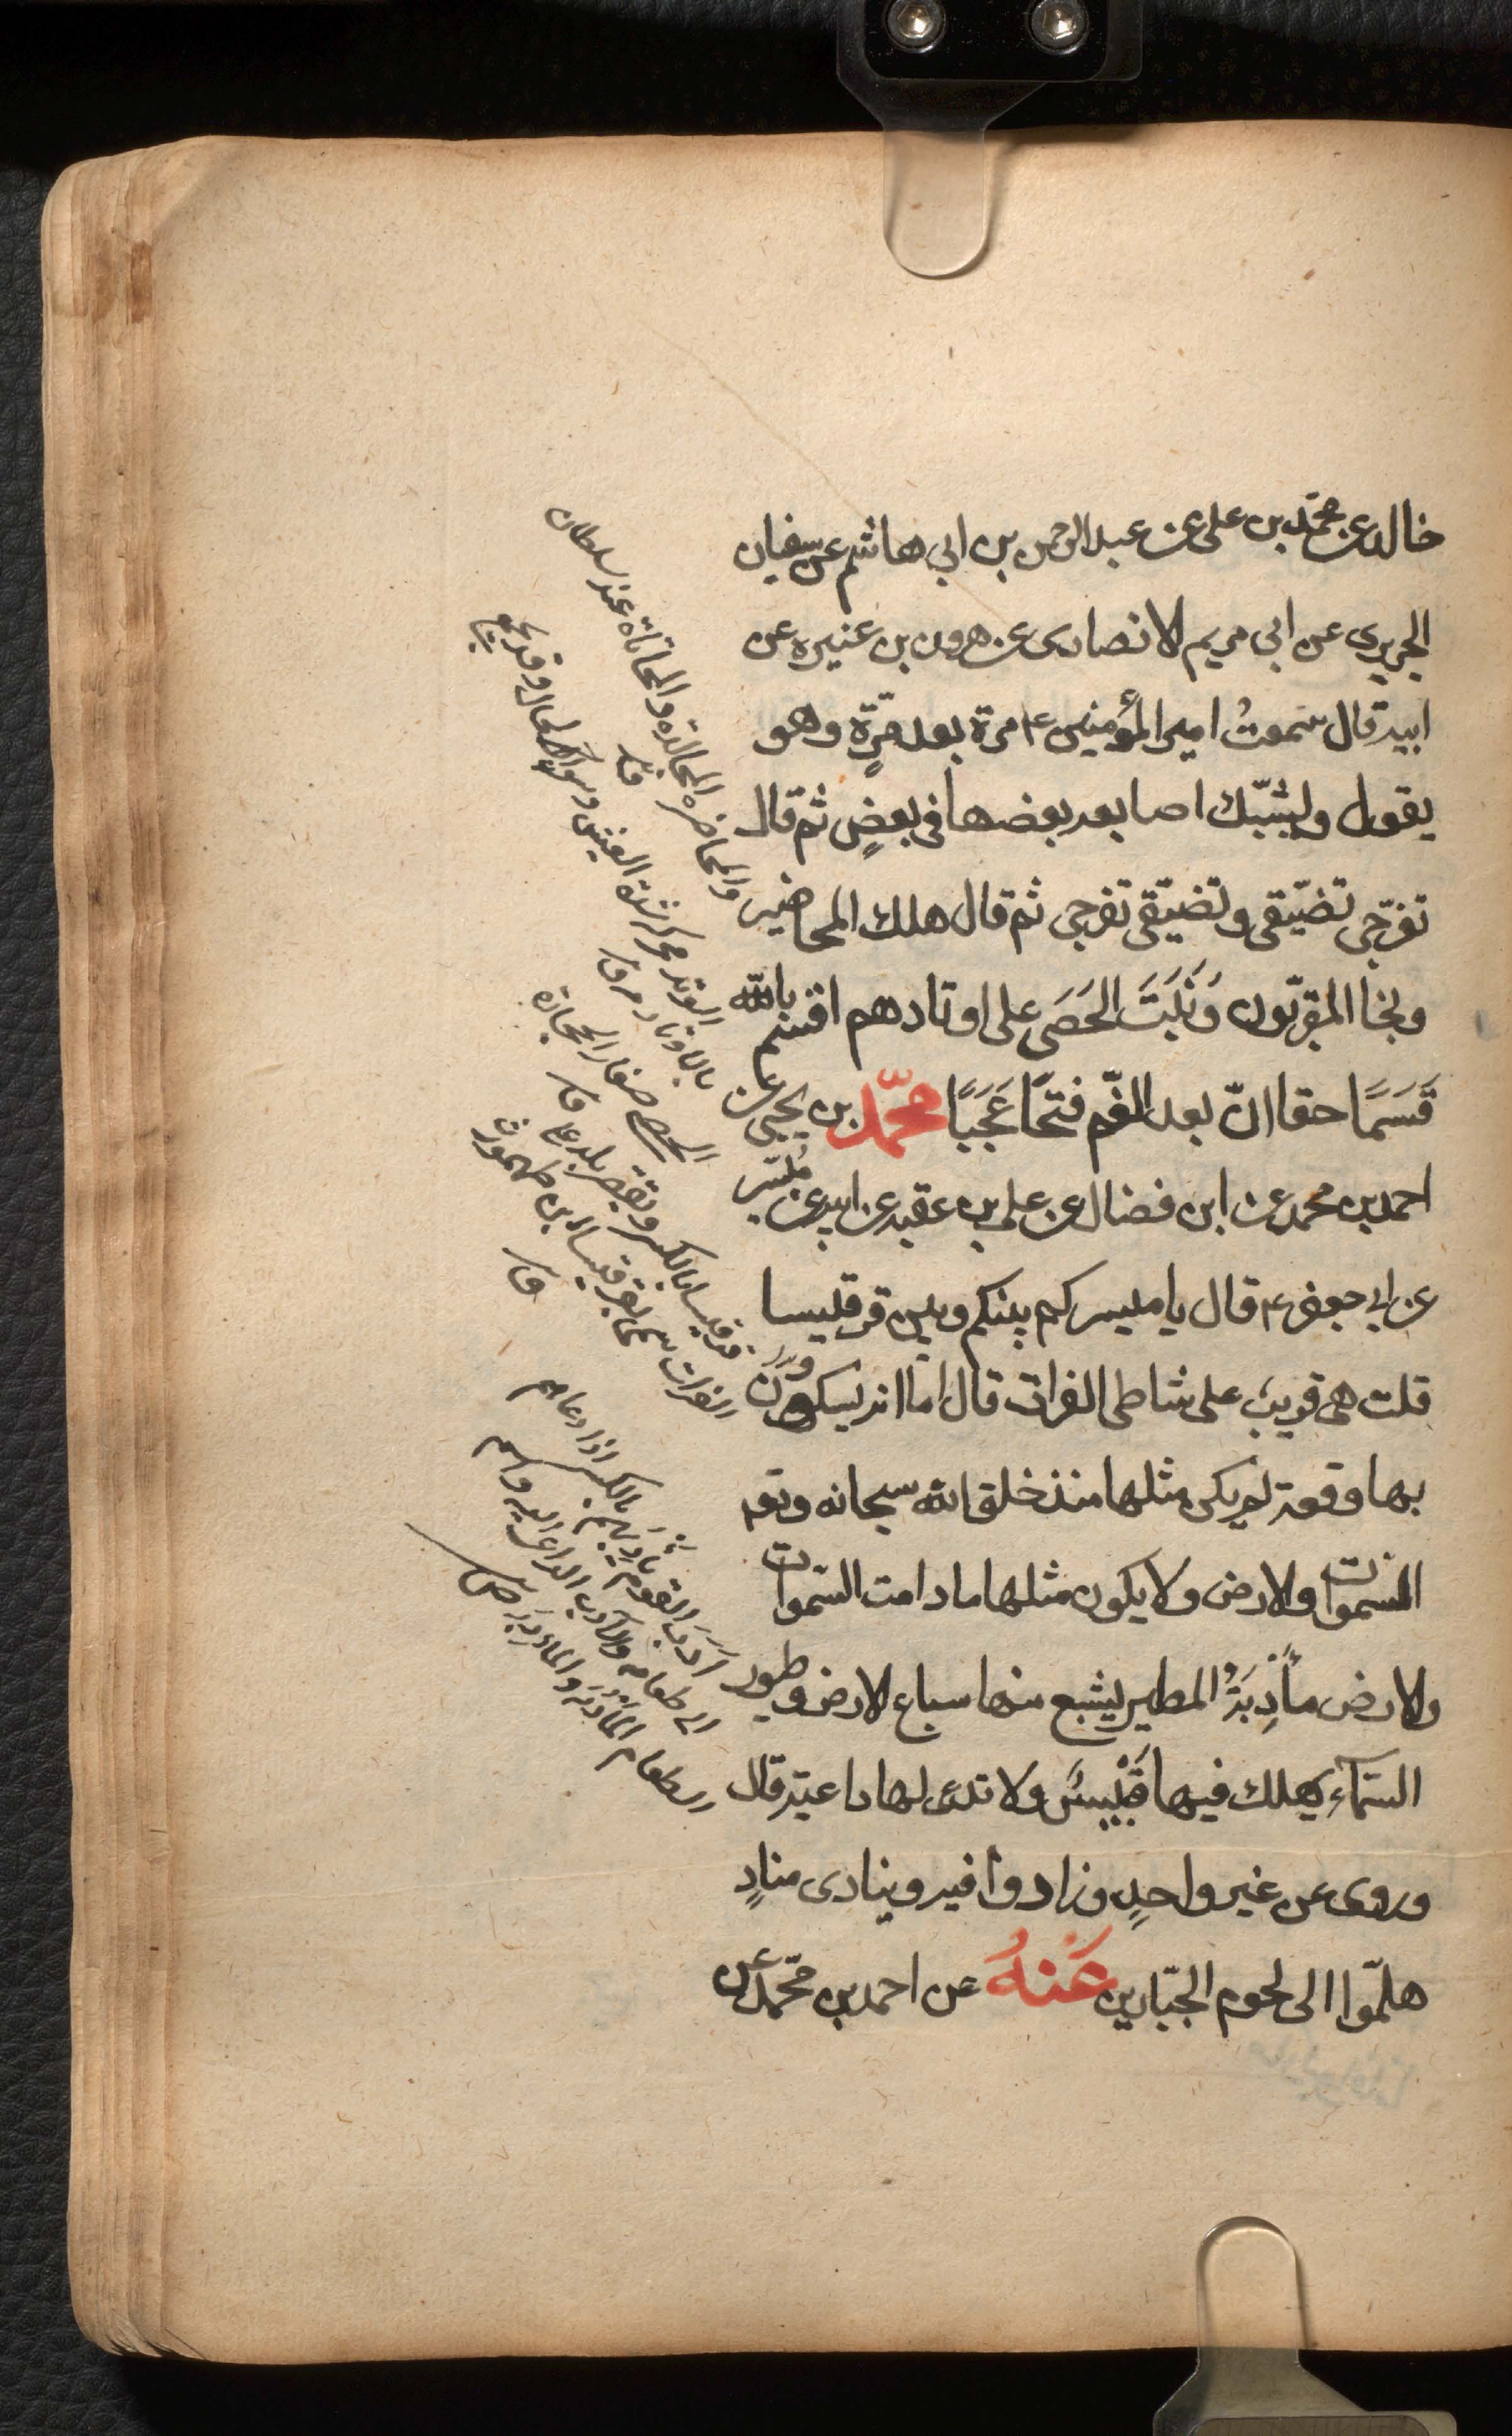 خالد عن محمّد بن على عن عبد الرحمن بن ابى هاشم عن سفيان
الجريرى عن ابى مريم الانصارى عن هرون بن عنبره عن
ابيه قال سمعتُ امير المؤمنين ع مرة بعد مرّةٍ وهو
يقول وليشبّك اصابعه بعضها فى بعضٍ ثم قال
تفرّجى تضيّقى وتضيّقى تفرجى ثم قال هلك المحاضير
ونجا المقرّبون وَثَبَتَ الحَصَى على اوتادهم اقسم بالله
قَسَمًا حقا انّ بعد الغّم فتحًا عَجَبًا محمّد بن يحيى عن
احمد بن محمد عن ابن فضال عن على بن عقبه عن ابيه عن مُيسّر
عن ابى جعفر ع قال يا ميسر كم بينكم وبين قرقيسا
قلت هى قريب على شاطى الفرات قال اما انه ليسكون
بها وقعة لم يكن مثلها منذ خلق الله سبحانه وتع
السموات والارض ولا يكون مثلها ما دامت السّموات
والارض مأدِبَةُ المطير يشبع منها سباع الارض وطيور
السّمآء يهلك فيها قَيْسٌ ولا تدعى لها داعية قال
وروى عن غير واحدٍ وزادوا فيه وينادى منادٍ
هلمّوا الى لحوم الجبّارين عَنْهُ عن احمد بن محمّد عن
والمحاضره المجالدة والمحاثاة عند سلطان
الحصى صغار الحجارة
قرقيسا بالكسر ويقصر بلد على
الفرات سمى بقرقيسا بن طهمورث
أَدَبَ القومَ يأدِبُهُم بالكسر اذا دعاهم
الى طعامه والآدب الداعى اليه واسم
الطعام المأدُبَة والمأدَبَة